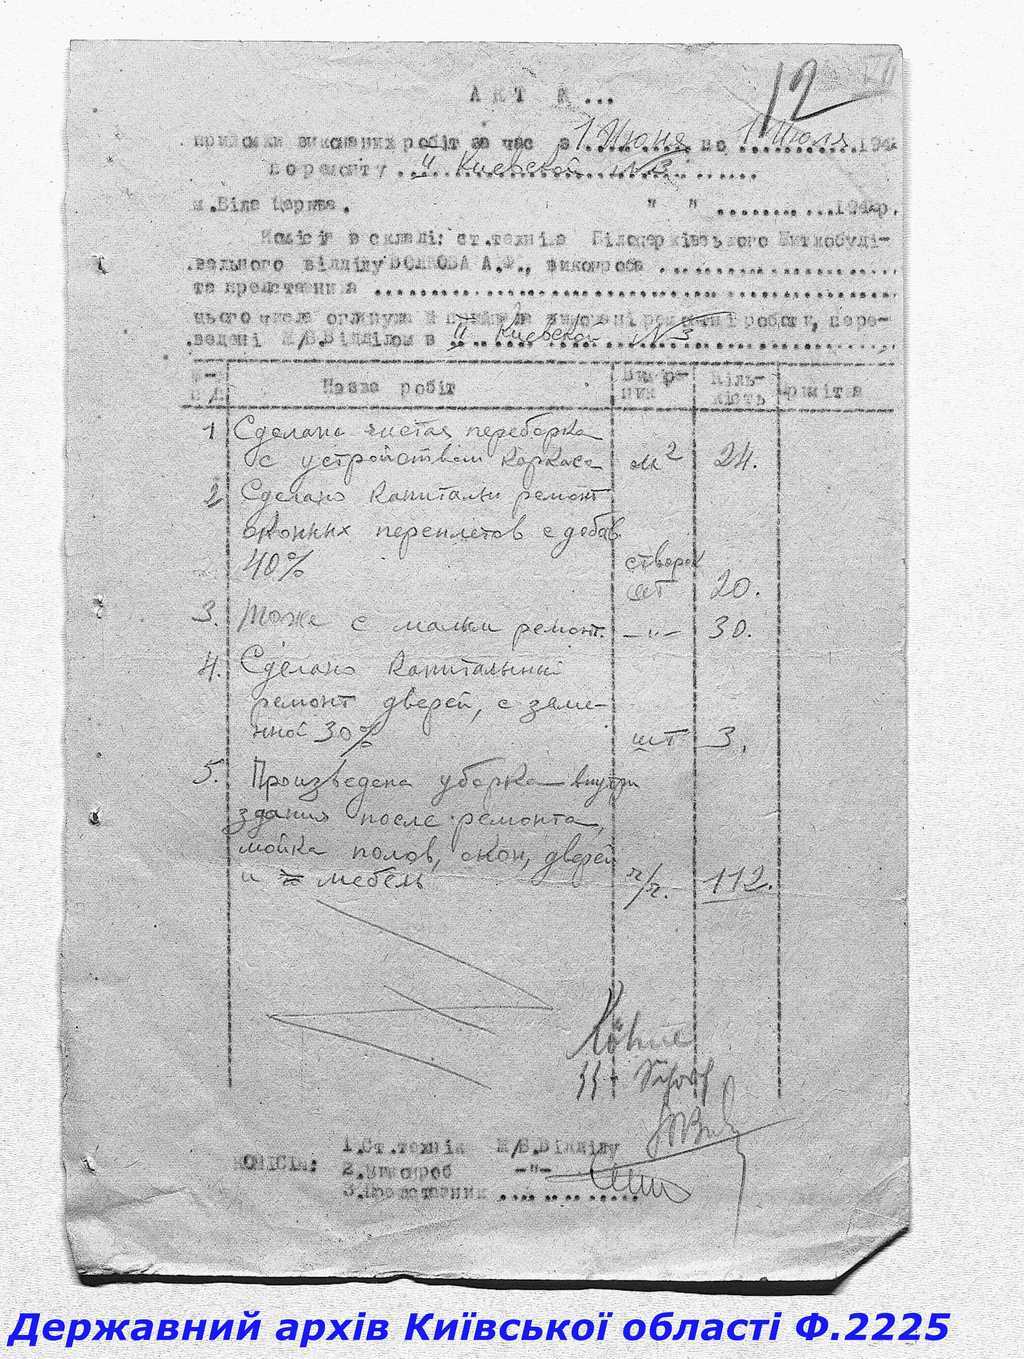 12
АКТ № ...
прийомки виконаних робіт за час з 1 Июня по 1 Июля 194
по ремонту ул. Киевской №3
м.Біла Церква. " " ............194 р.
Комісія в складі: ст.техніка Білоцерківського Житлобуді-
вельного відділу ВОЛКОВА А.Ф., виконроба ..................
та представника ..................
цього числа оглянула й прийняла виконані ремонтні роботи, пере-
ведені Ж/В.Відділом в ул. Киевской №3
п/п Назва робіт Вимірник Кіль-кість Примітка
1 Сделана чистая переборка
с устройством каркаса м² 24.
2 Сделано капитальн ремонт
оконных переплетов с добав
40% створок шт 20.
3. Тоже с малым ремонт. -"- 30.
4. Сделано капитальный
ремонт дверей, с заме-
ной 30% шт 3.
5. Произведена уборка внутри
здания после ремонта,
мойка полов, окон, дверей
и мебель ч/ч. 112.
Köhne
КОМІСІЯ: 1.Ст.технік Ж/В.Відділу
2.Виконроб -"-
3.Представник ............
Державний архів Київської області Ф.2225